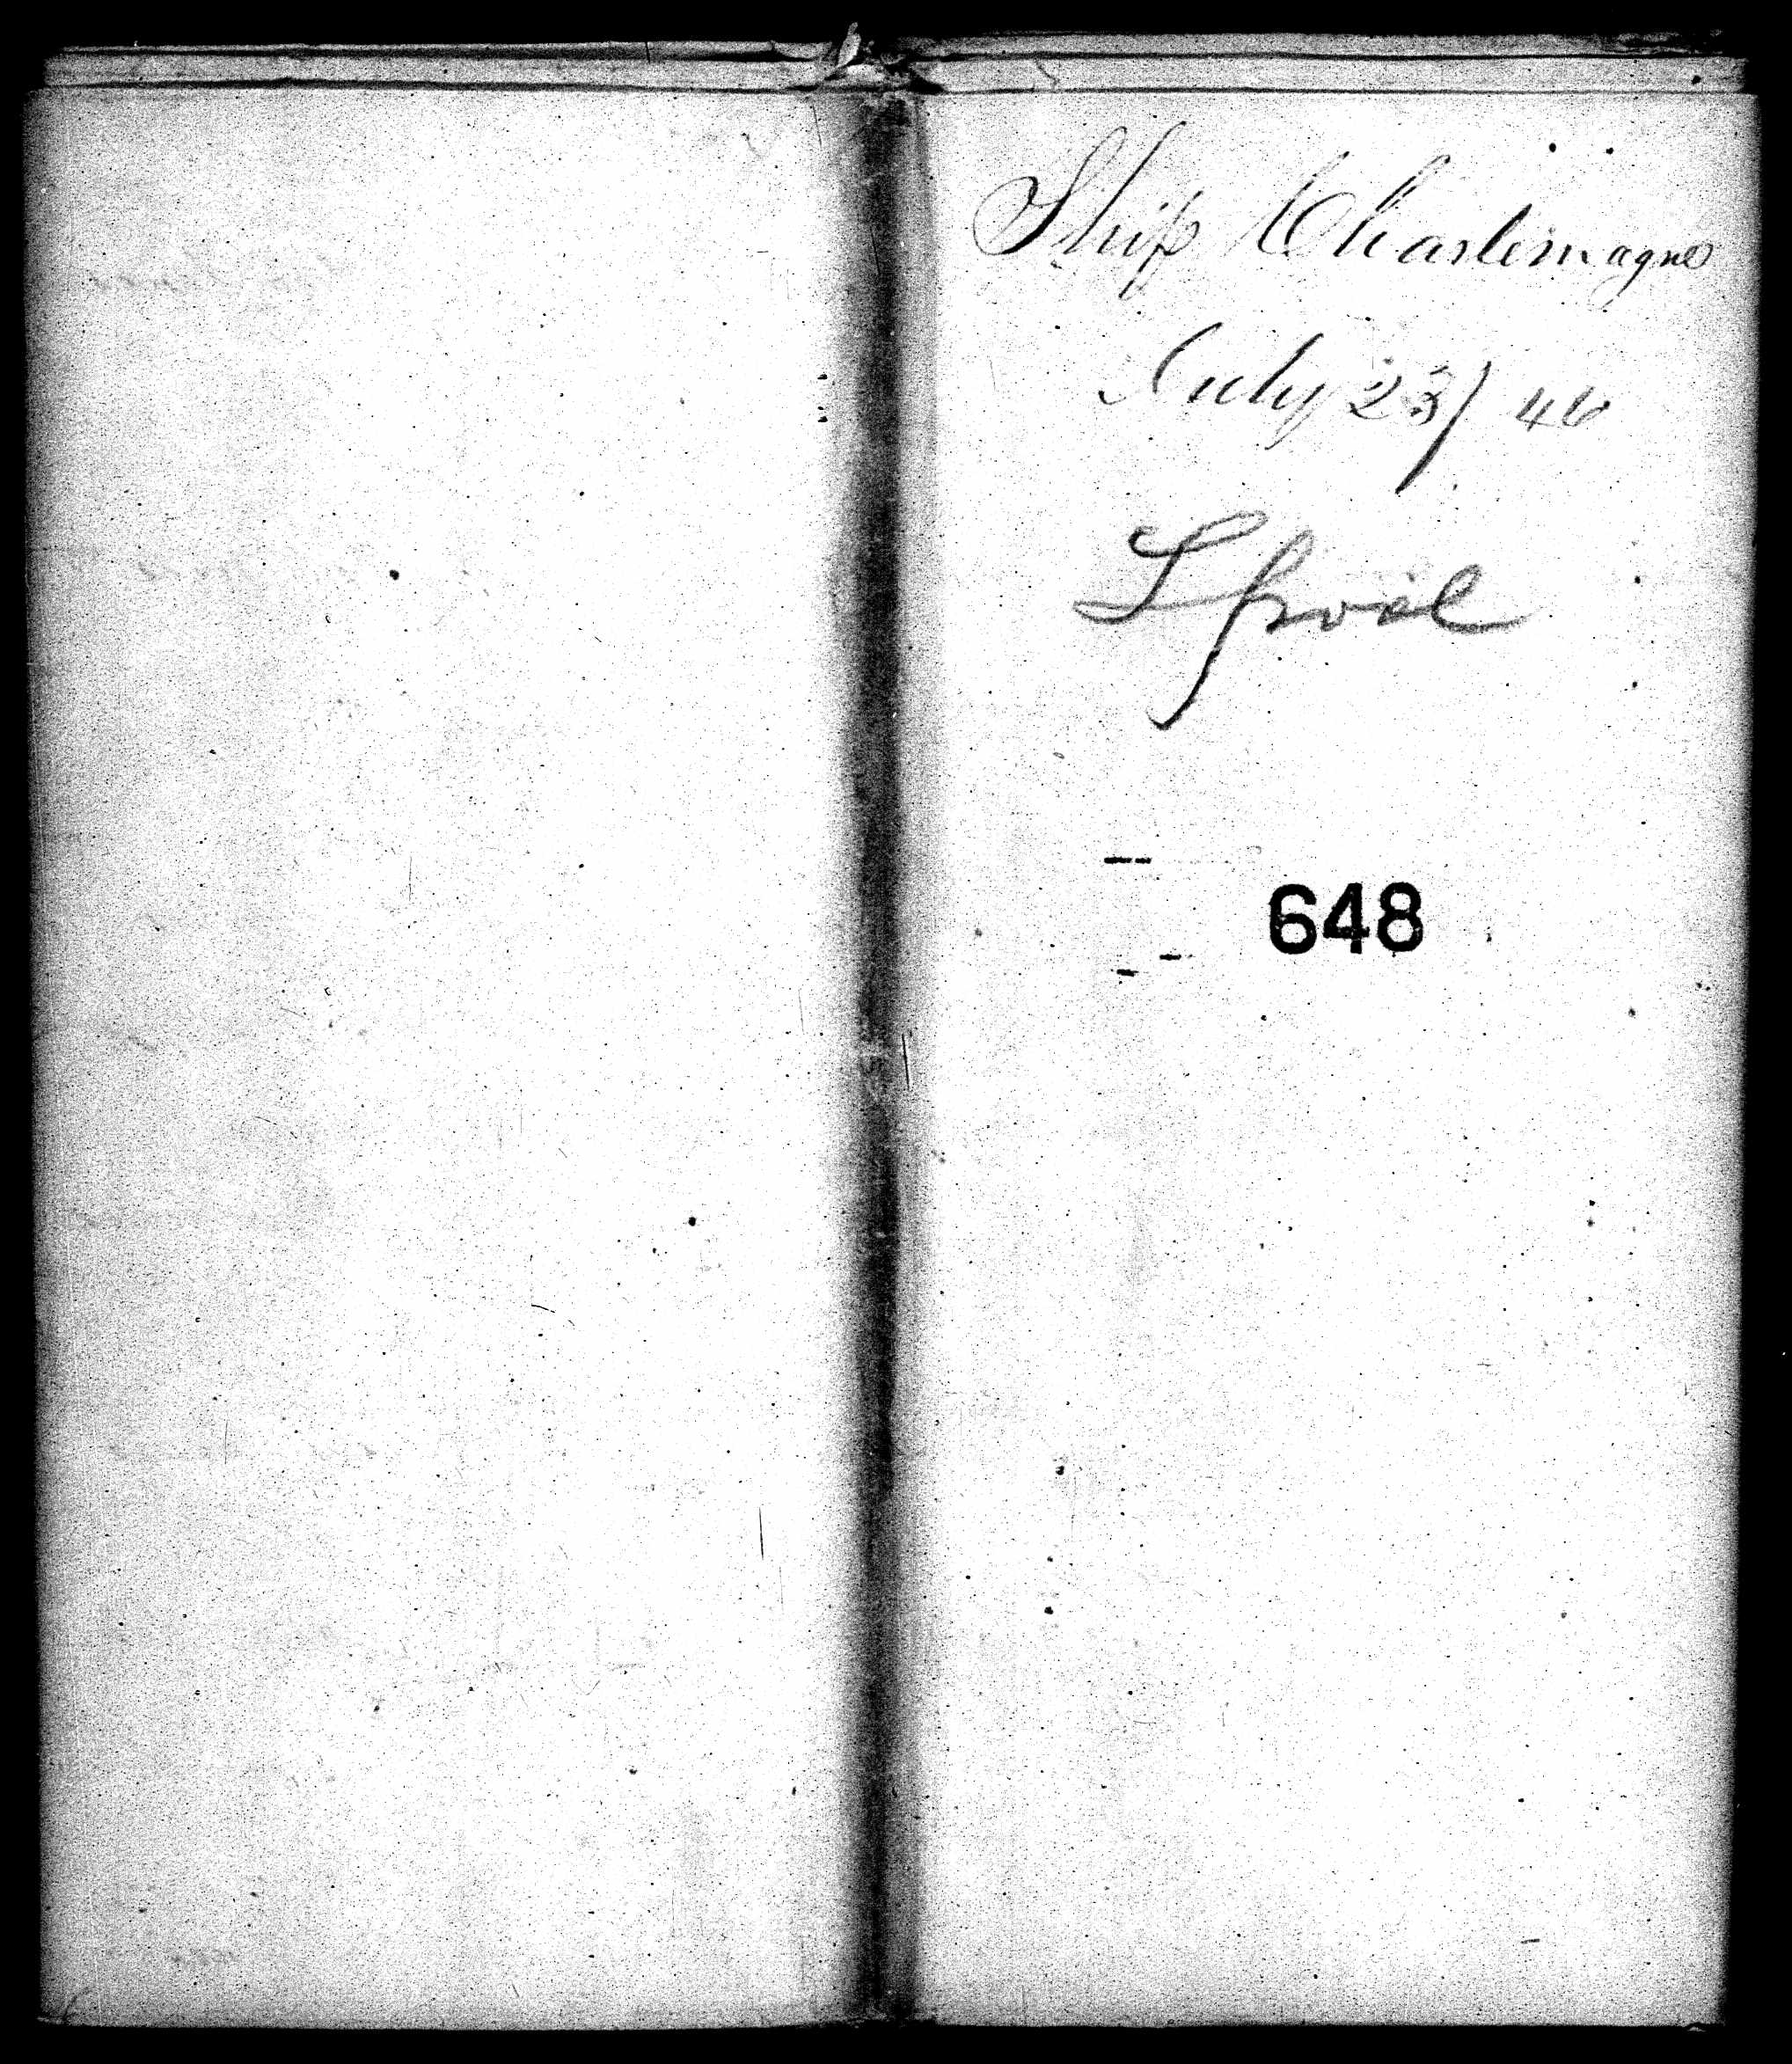 Ship Charlemagne
July 23/46
L pool
648